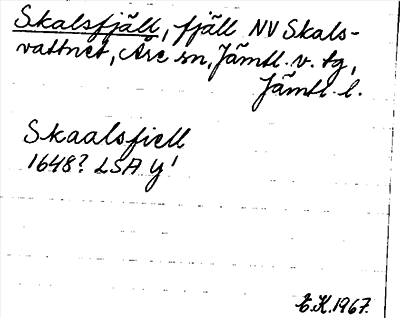 Skalsfjäll, fjäll NV Skals-
vattnet, Åre sn, Jämtl. v. tg,
Jämtl. l.
Skaalsfiell
1648? LSA y'
E.K. 1967.